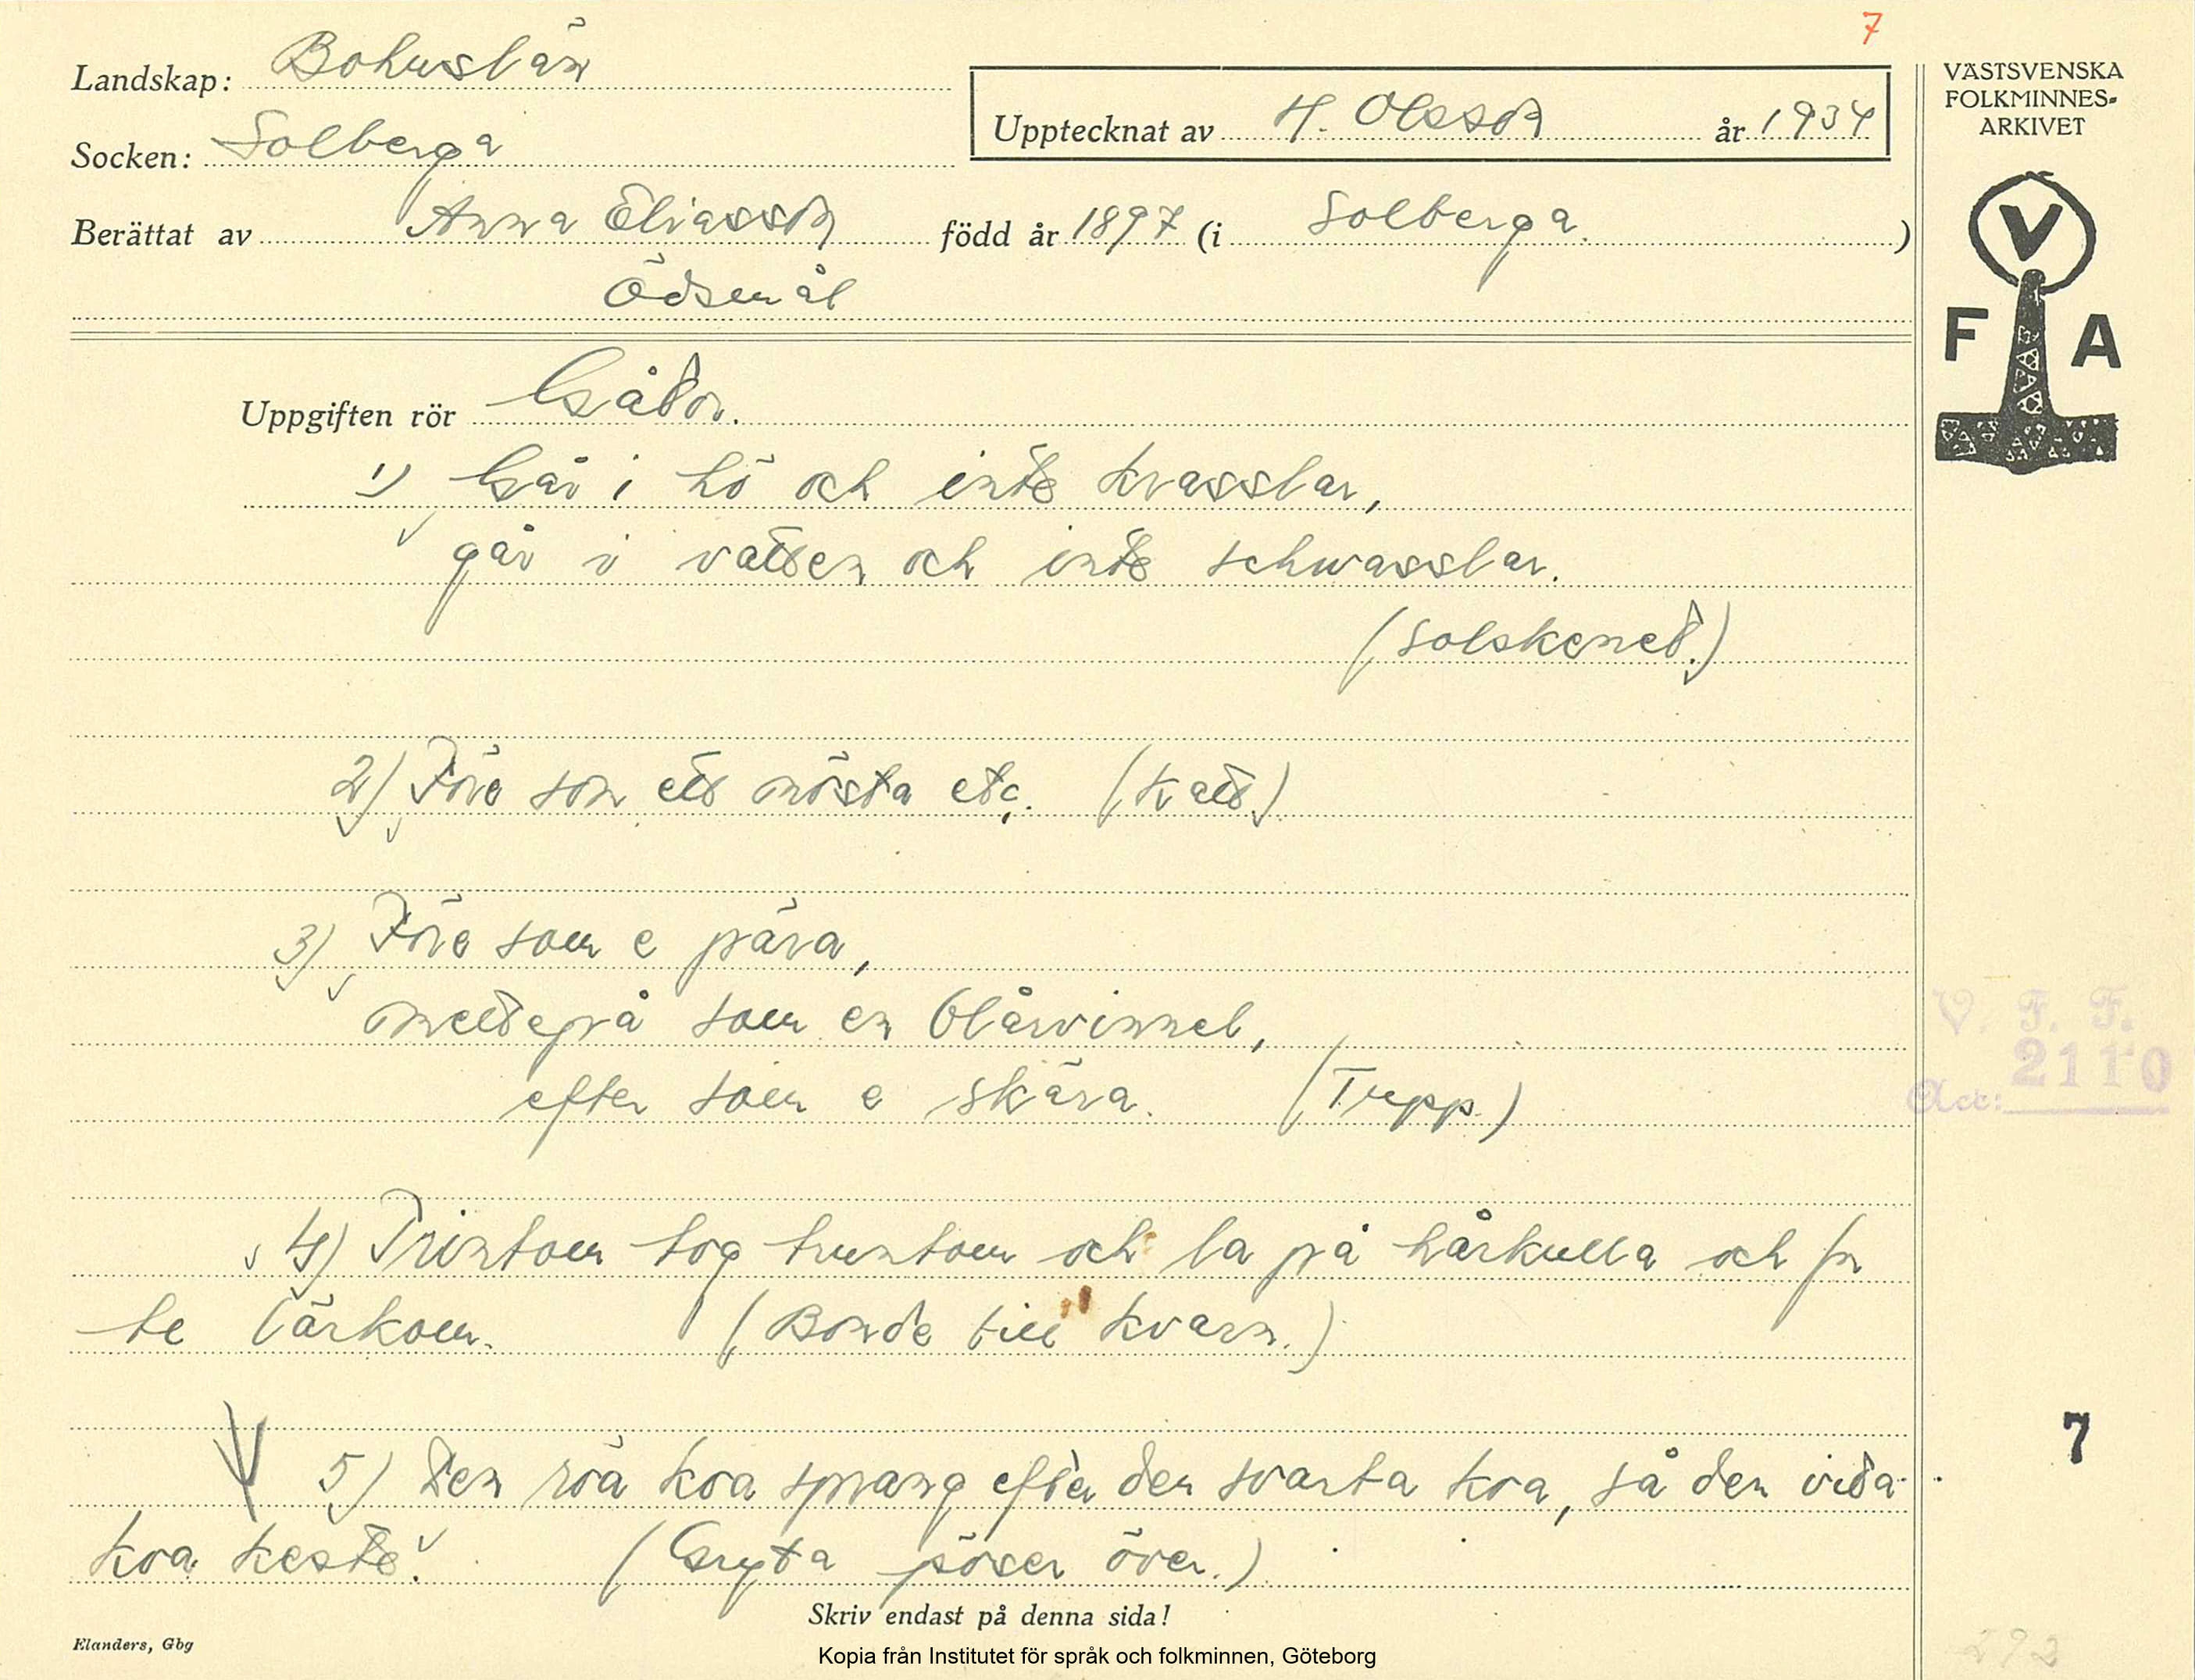 7
Landskap: Bohuslän
Socken: Solberga
Upptecknat av H. Olsson år 1934
Berättat av Anna Eliasson född år 1897 (i Solberga.)
Ödsmål
VÄSTSVENSKA
FOLKMINNES-
ARKIVET
V
F A
Uppgiften rör Gåtor.
1) Går i hö och inte krasslar,
går i vatten och inte schwasslar.
(Solskenet.)
2) Före som ett nösta etc. (Katt.)
3) Före som e pära,
mettepå som en blårvinnel,
efter som e skära. (Tupp.)
4) Trintom tog truntom och la på hårkulla och for
te lärkom. (Bonde till kvarn.)
5) Den röa koa sprang efter den svarta koa, så den vida
koa keste. (Gryta pöser över.)
V. F. F.
2110
Acc:
7
Skriv endast på denna sida!
Elanders, Gbg
Kopia från Institutet för språk och folkminnen, Göteborg
292